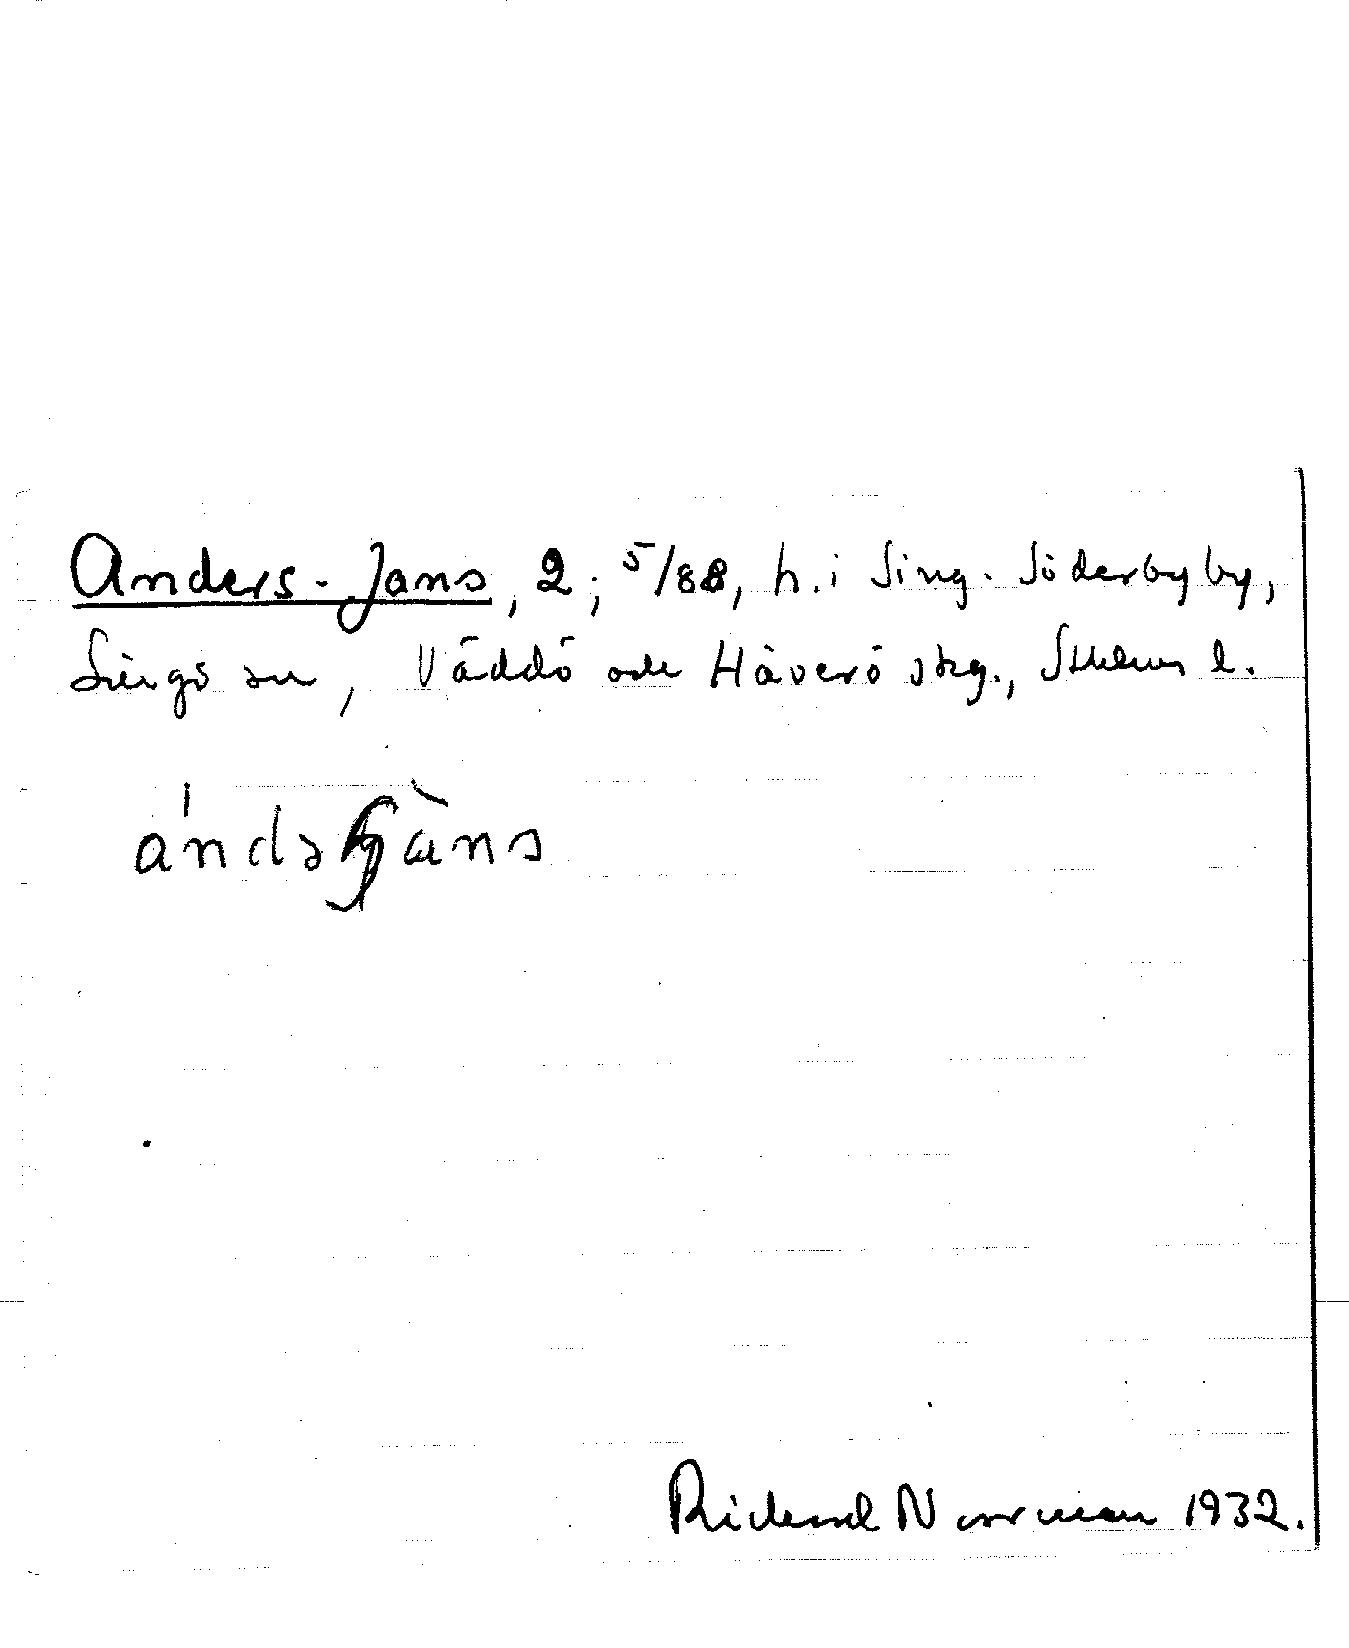 Anders-Jans, 2; 5/88, h. i Sing-Söderby by,
Singö sn, Väddö och Häverö skg., Sthlms l.
Rickard Norrman 1932.